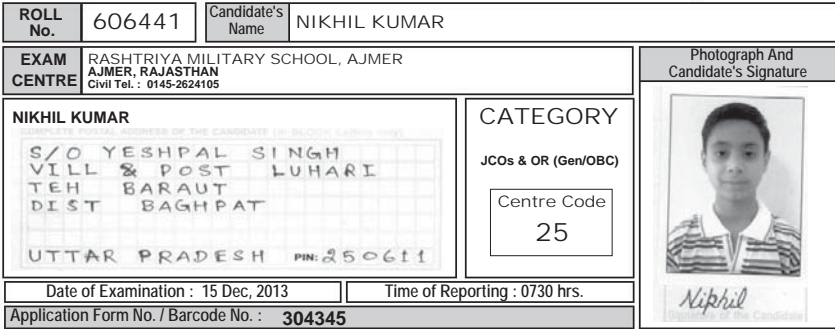 ROLL No. 606441 Candidate's Name NIKHIL KUMAR
EXAM CENTRE
RASHTRIYA MILITARY SCHOOL, AJMER
AJMER, RAJASTHAN
Civil Tel. : 0145-2624105
Photograph And
Candidate's Signature
NIKHIL KUMAR
COMPLETE POSTAL ADDRESS OF THE CANDIDATE (in BLOCK Letters only)
S/O YESHPAL SINGH
VILL & POST LUHARI
TEH BARAUT
DIST BAGHPAT
UTTAR PRADESH PIN: 250611
CATEGORY
JCOs & OR (Gen/OBC)
Centre Code
25
Nikhil
Signature of the Candidate
Date of Examination : 15 Dec, 2013
Time of Reporting : 0730 hrs.
Application Form No. / Barcode No. : 304345